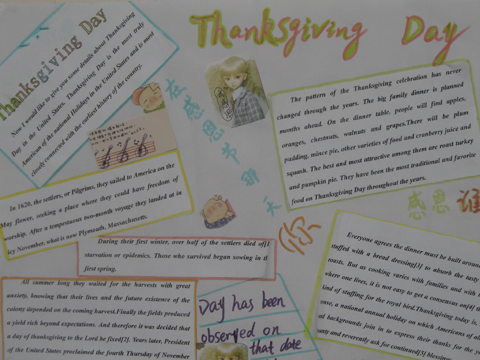 Thanksgiving Day
Thanksgiving Day
Now I would like to give you some details about Thanksgiving
Day in the United States. Thanksgiving Day is the most truly
American of the national Holidays in the United States and is most
closely connected with the earliest history of the country.
在感恩节那天
The pattern of the Thanksgiving celebration has never
changed through the years. The big family dinner is planned
months ahead. On the dinner table, people will find apples,
oranges, chestnuts, walnuts and grapes.There will be plum
pudding, mince pie, other varieties of food and cranberry juice and
squash. The best and most attractive among them are roast turkey
and pumpkin pie. They have been the most traditional and favorite
food on Thanksgiving Day throughout the years.
In 1620, the settlers, or Pilgrims, they sailed to America on the
May flower, seeking a place where they could have freedom of
worship. After a tempestuous two-month voyage they landed at in
icy November, what is now Plymouth, Massachusetts.
During their first winter, over half of the settlers died of[1
starvation or epidemics. Those who survived began sowing in the
first spring.
你
感恩谁
All summer long they waited for the harvests with great
anxiety, knowing that their lives and the future existence of the
colony depended on the coming harvest.Finally the fields produced
a yield rich beyond expectations. And therefore it was decided that
a day of thanksgiving to the Lord be fixed[2]. Years later, President
of the United States proclaimed the fourth Thursday of November
Day has been
observed on
that date
Everyone agrees the dinner must be built around
stuffed with a bread dressing[3] to absorb the tasty
roast. But as cooking varies with families and with
where one lives, it is not easy to get a consensus on[4]
kind of stuffing for the royal bird.Thanksgiving today is,
case, a national annual holiday on which Americans of
backgrounds join in to express their thanks for the
and reverently ask for continued[5]